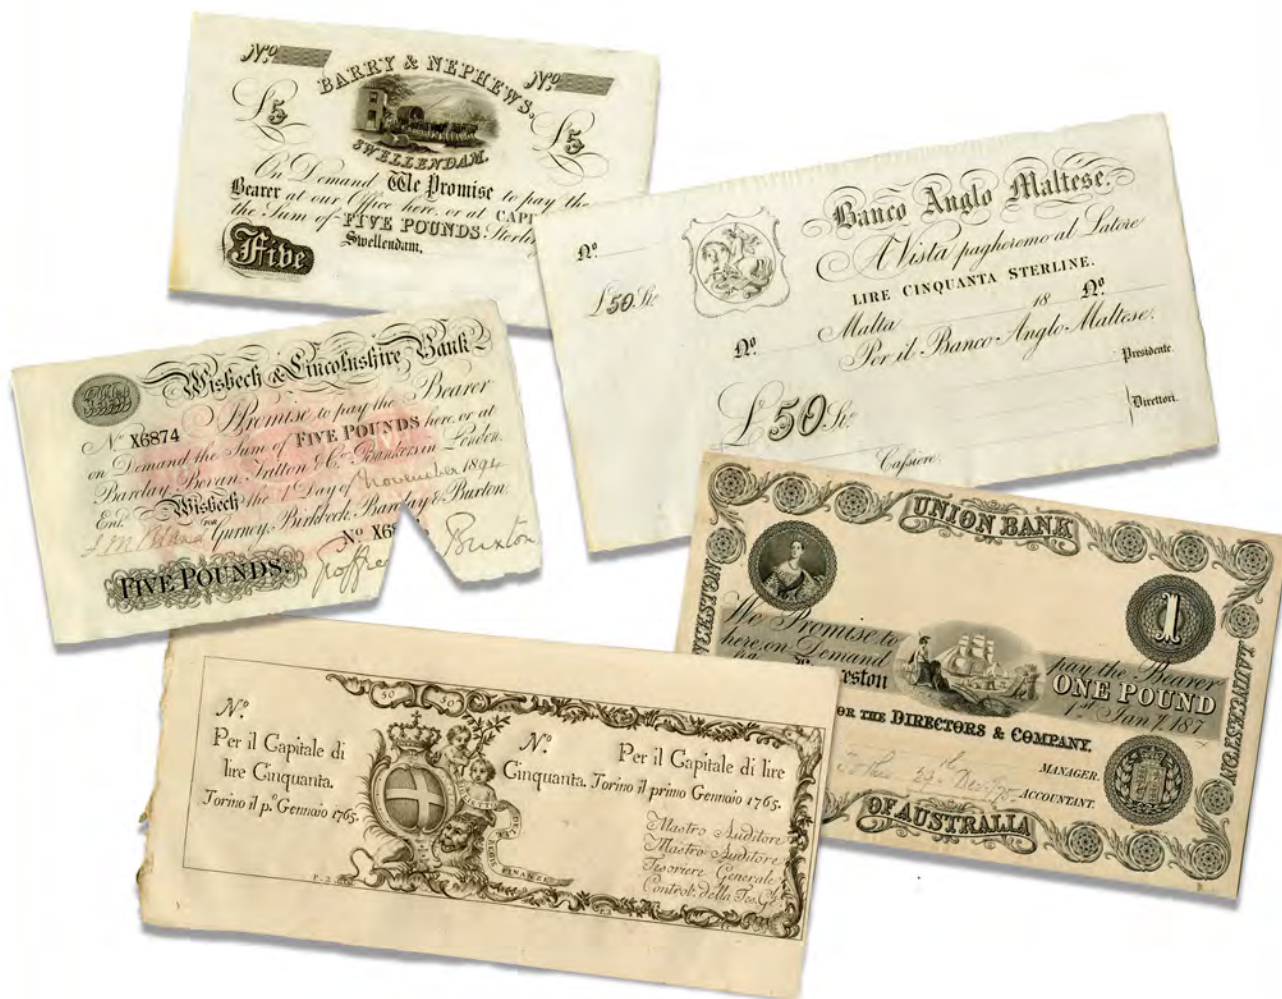 Nº Nº
BARRY & NEPHEWS,
£5 £5
SWELLENDAM.
On Demand We Promise to pay the
Bearer at our Office here, or at
the Sum of FIVE POUNDS
Swellendam,
Five
Banco Anglo Maltese.
A Vista pagheremo al Latore
LIRE CINQUANTA STERLINE.
Nº
£50 Stc
Malta 18 Nº
Nº
Per il Banco Anglo-Maltese.
Presidente.
£50 Stc
Direttori.
Cassiere.
Wisbech & Lincolnshire Bank
I Promise to pay the Bearer
Nº X6874
on Demand the Sum of FIVE POUNDS here, or at
Barclay Bevan, Tritton & Co. Bankers in London.
Wisbech the 1 Day of November 1894
Entd.
FOR Gurney, Birkbeck, Barclay & Buxton.
Nº X6
FIVE POUNDS.
Buxton
UNION BANK
LAUNCESTON
1
We Promise to pay the Bearer
here, on Demand ONE POUND
eston 1st Jany. 187
OR THE DIRECTORS & COMPANY.
MANAGER.
ACCOUNTANT.
OF AUSTRALIA
50 50
Nº.
Per il Capitale di
lire Cinquanta.
Torino il pº. Gennaio 1765.
Nº. Per il Capitale di lire
Cinquanta. Torino il primo Gennaio 1765.
Mastro Auditore
Mastro Auditore
Tesoriere Generale
Control. della Tes. Gle.
DELLE REGIE FINANZE